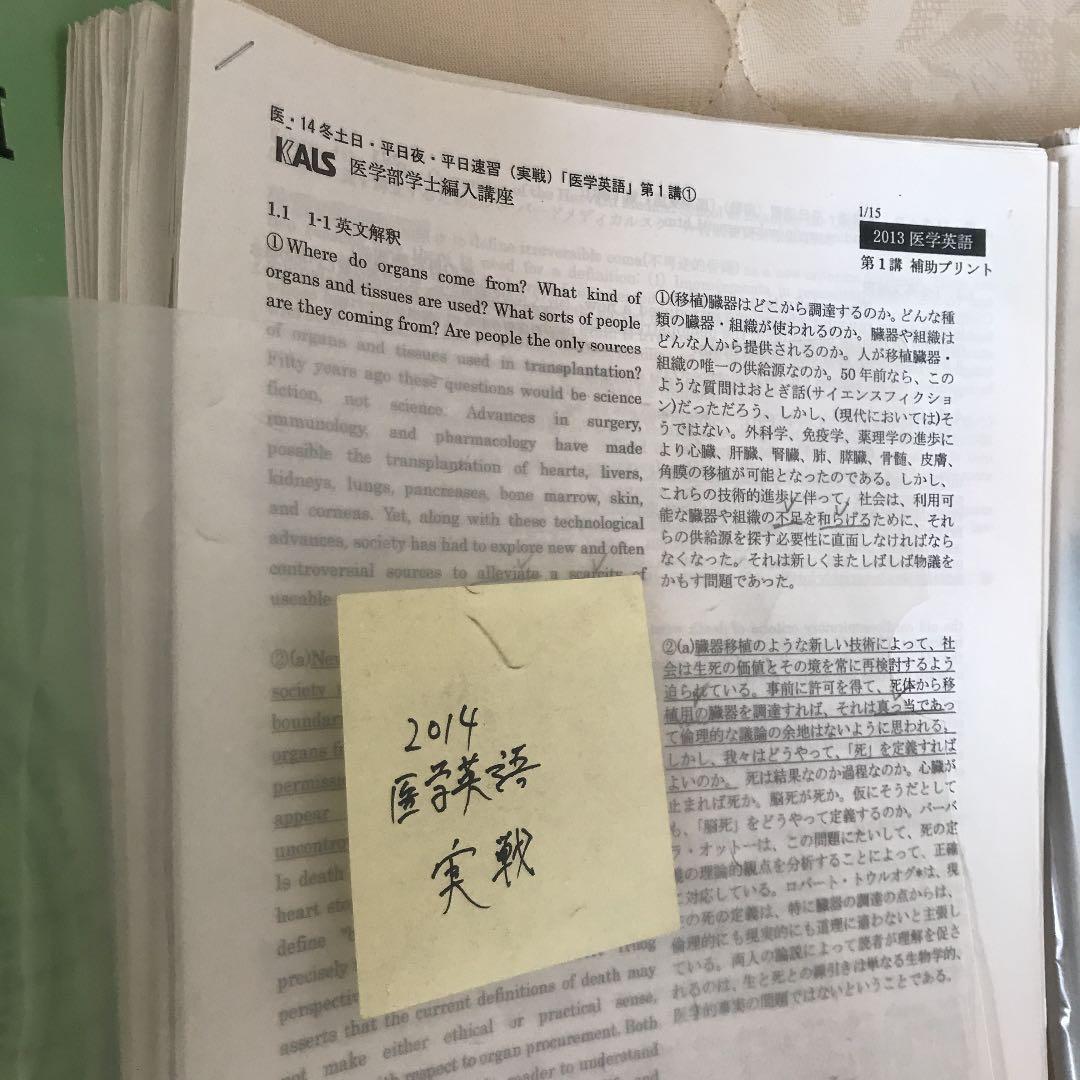 医・14冬土日・平日夜・平日速習（実戦）「医学英語」第1講①
KALS 医学部学士編入講座
1/15
2013 医学英語
第1講 補助プリント
1.1 1-1英文解釈
①Where do organs come from? What kind of
organs and tissues are used? What sorts of people
are they coming from? Are people the only sources
of organs and tissues used in transplantation?
Fifty years ago these questions would be science
fiction, not science. Advances in surgery,
immunology, and pharmacology have made
possible the transplantation of hearts, livers,
kidneys, lungs, pancreases, bone marrow, skin,
and corneas. Yet, along with these technological
advances, society has had to explore new and often
controversial sources to alleviate a scarcity of
useable
②(a)New
society
boundar
organs f
permiss
appear
uncontro
Is death
heart sto
define
precisely
perspectiv
asserts that the current definitions of death may
not make either ethical or practical sense,
with respect to organ procurement. Both
reader to understand
①(移植)臓器はどこから調達するのか。どんな種
類の臓器・組織が使われるのか。臓器や組織は
どんな人から提供されるのか。人が移植臓器・
組織の唯一の供給源なのか。50年前なら、この
ような質問はおとぎ話(サイエンスフィクショ
ン)だっただろう、しかし、(現代においては)そ
うではない。外科学、免疫学、薬理学の進歩に
より心臓、肝臓、腎臓、肺、膵臓、骨髄、皮膚、
角膜の移植が可能となったのである。しかし、
これらの技術的進歩に伴って、社会は、利用可
能な臓器や組織の不足を和らげるために、それ
らの供給源を探す必要性に直面しなければなら
なくなった。それは新しくまたしばしば物議を
かもす問題であった。
②(a)臓器移植のような新しい技術によって、社
会は生死の価値とその境を常に再検討するよう
迫られている。事前に許可を得て、死体から移
植用の臓器を調達すれば、それは真っ当であっ
て倫理的な議論の余地はないように思われる。
しかし、我々はどうやって、「死」を定義すれば
よいのか。死は結果なのか過程なのか。心臓が
止まれば死か。脳死が死か。仮にそうだとして
も、「脳死」をどうやって定義するのか。バーバ
ラ・オットーは、この問題にたいして、死の定
義の理論的観点を分析することによって、正確
に対応している。ロバート・トウルオグ*は、現
の死の定義は、特に臓器の調達の点からは、
倫理的にも現実的にも道理に適わないと主張し
ている。両人の論説によって読者が理解を促さ
れるのは、生と死との線引きは単なる生物学的、
医学的事実の問題ではないということである。
2014
医学英語
実戦